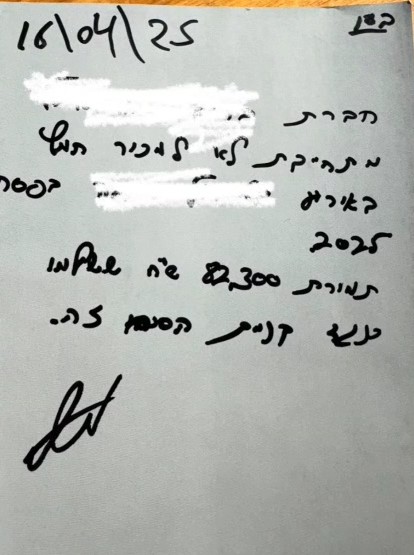 בס"ד
16/04/25
חברת
מתחייבת לא למכור חמץ
באירוע בפסח
2025
תמורת 82,300 ש"ח ששולמו
כנגד קניית הסימון זה.